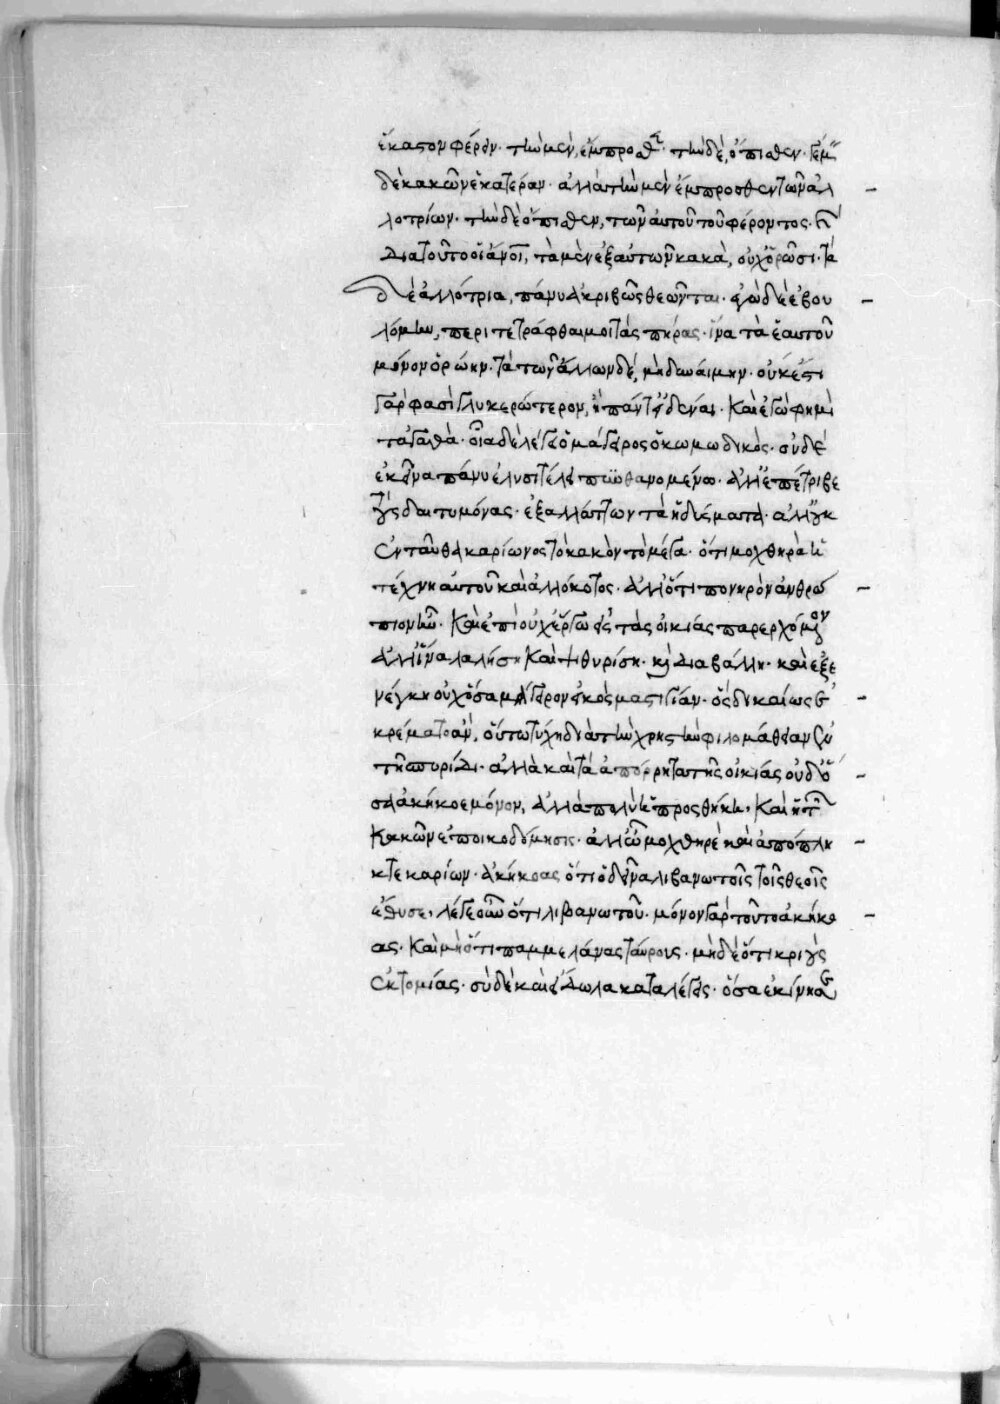 ἕκαστον φέρειν· τὴν μὲν, ἔμπροσθεν· τὴν δὲ, ὄπισθεν· γέμειν
δὲ κακῶν ἑκατέραν· ἀλλὰ τὴν μὲν ἔμπροσθεν τῶν ἀλ
λοτρίων· τὴν δὲ ὄπισθεν, τῶν αὐτοῦ τοῦ φέροντος· καὶ
διατοῦτο οἱ ἄνοι, τὰ μὲν ἐξ αὑτῶν κακὰ, οὐχ ὁρῶσι· τὰ
δὲ ἀλλότρια, πάνυ ἀκριβῶς θεῶνται· ἐγὼ δὲ ἐβου
λόμην, περιτετράφθαι μοι τὰς πήρας· ἵνα τὰ ἐαυτοῦ
μόνον ὁρῴην· τὰ τῶν ἄλλων δέ, μηδυναίμην· οὐκ ἔστι
γάρ φασι γλυκερώτερον, ἢ πάντ εἰδέναι· καὶ ἐγὼ φημὶ
τἀγαθὰ· οἷα δὲ λέγει ὁ μάγειρος ὁ κωμωδικὸς· οὐδὲ
ἐκεῖνα πάνυ ἐλυσιτέλει πυνθανομένῳ· ἀλλ' ἐπέτριβε
τοὺς δαιτυμόνας· ἐξαλλάττων τὰ ἡδύσματα· ἀλλ' οὐκ
ἐνταῦθα καρίωνος τὸ κακὸν τὸ μέγα· ὅτι μοχθηρὰ ἡ
τέχνη αὐτοῦ καὶ ἀλλόκοτος· ἀλλ' ὅτι πονηρὸν ἀνθρώ
πιον ἦν· καὶ ἐπὶ οὐχ ἔργῳ εἰς τὰς οἰκίας παρερχόμενον
ἀλλ' ἵνα λαλήση καὶ ψιθυρίση· καὶ διαβάλλη· καὶ ἐξε
νέγκη οὐχ ὅσα μάγειρον εἰκὸς μαστιγίαν· ὃς δικαίως ἐ
κρέματο ἂν, οὕτω τύχη διὰ τὴν χρηστὴν φιλομάθειαν ξὺ
τῆ σπυρίδι· ἀλλὰ καὶ τὰ ἀπόρρητα τῆς οἰκίας οὐδ' ὅ
σα ἀκήκοε μόνον, ἀλλὰ πολὺ ἡ προσθήκη, καὶ ἡ τῶν
κακῶν ἐποικοδόμησις· ἀλλ' ὦ μοχθηρὲ καὶ ἀπόπλη
κτε καρίων· ἀκήκοας ὅτι ὁ δεῖνα λιβανωτοῖς τοῖς θεοῖς
ἔθυσε, λέγε οὖν ὅτι λιβανωτοῦ· μόνον γὰρ τοῦτο ἀκήκο
ας· καὶ μὴ ὅτι παμμέλανας ταύρους· μηδὲ ὅτι κριοὺς
ἐκτομίας· σὺ δὲ καὶ εἴδωλα καταλέγεις· ὅσα ἐκίνησεν